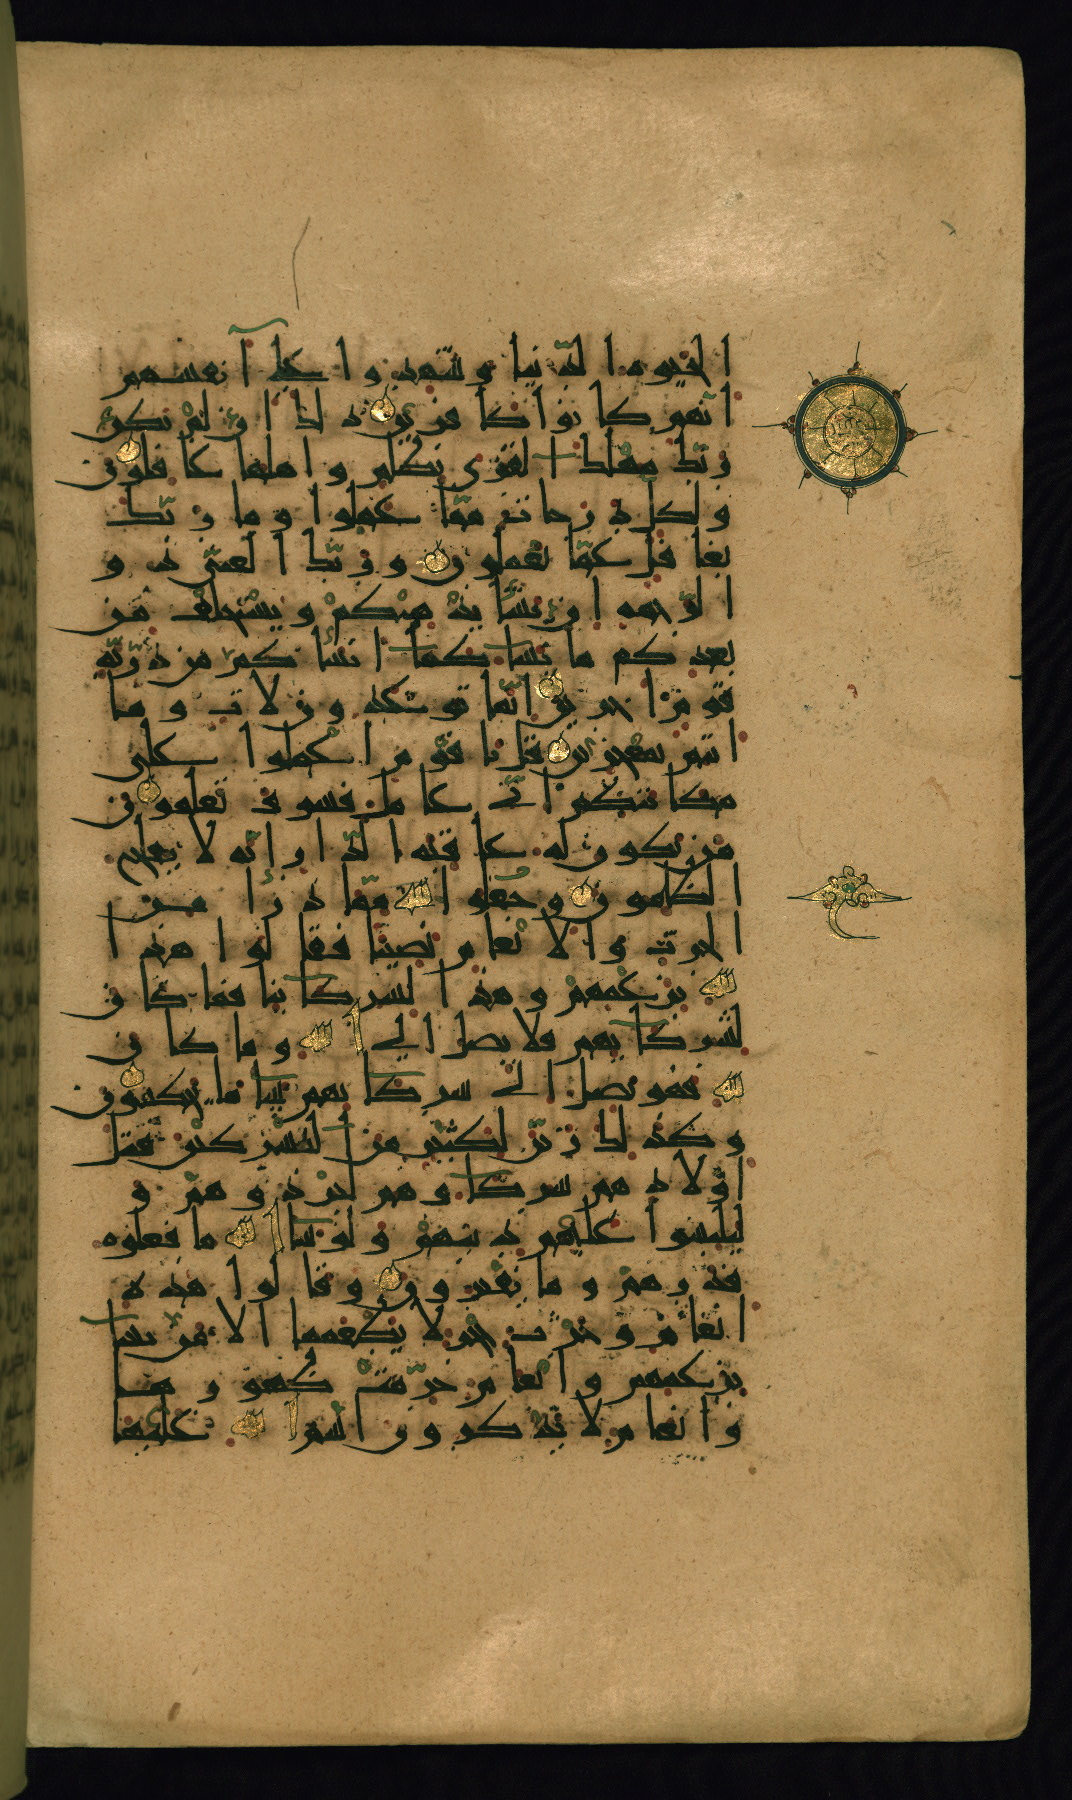 الحيوه الدنيا وشهدوا على انفسهم
انهم كانوا كافرين ذلك ان لم يكن
ربك مهلك القرى بظلم واهلها غافلون
ولكل درجات مما عملوا وما ربك
بغافل عما يعملون وربك الغني ذو
الرحمه ان يشأ يذهبكم ويستخلف من
بعدكم ما يشاء كما انشأكم من ذريه
قوم اخرين انما توعدون لات وما
انتم بمعجزين قل يا قوم اعملوا على
مكانتكم اني عامل فسوف تعلمون
من تكون له عاقبه الدار انه لا يفلح
الظلمون وجعلوا لله مما ذرأ من
الحرث والانعام نصيبا فقالوا هذا
لله بزعمهم وهذا لشركائنا فما كان
لشركائهم فلا يصل الى الله وما كان
لله فهو يصل الى شركائهم ساء ما يحكمون
وكذلك زين لكثير من المشركين قتل
اولادهم شركاؤهم ليردوهم و
ليلبسوا عليهم دينهم ولو شاء الله ما فعلوه
فذرهم وما يفترون وقالوا هذه
انعام وحرث حجر لا يطعمها الا من نشاء
بزعمهم وانعام حرمت ظهورها
وانعام لا يذكرون اسم الله عليها